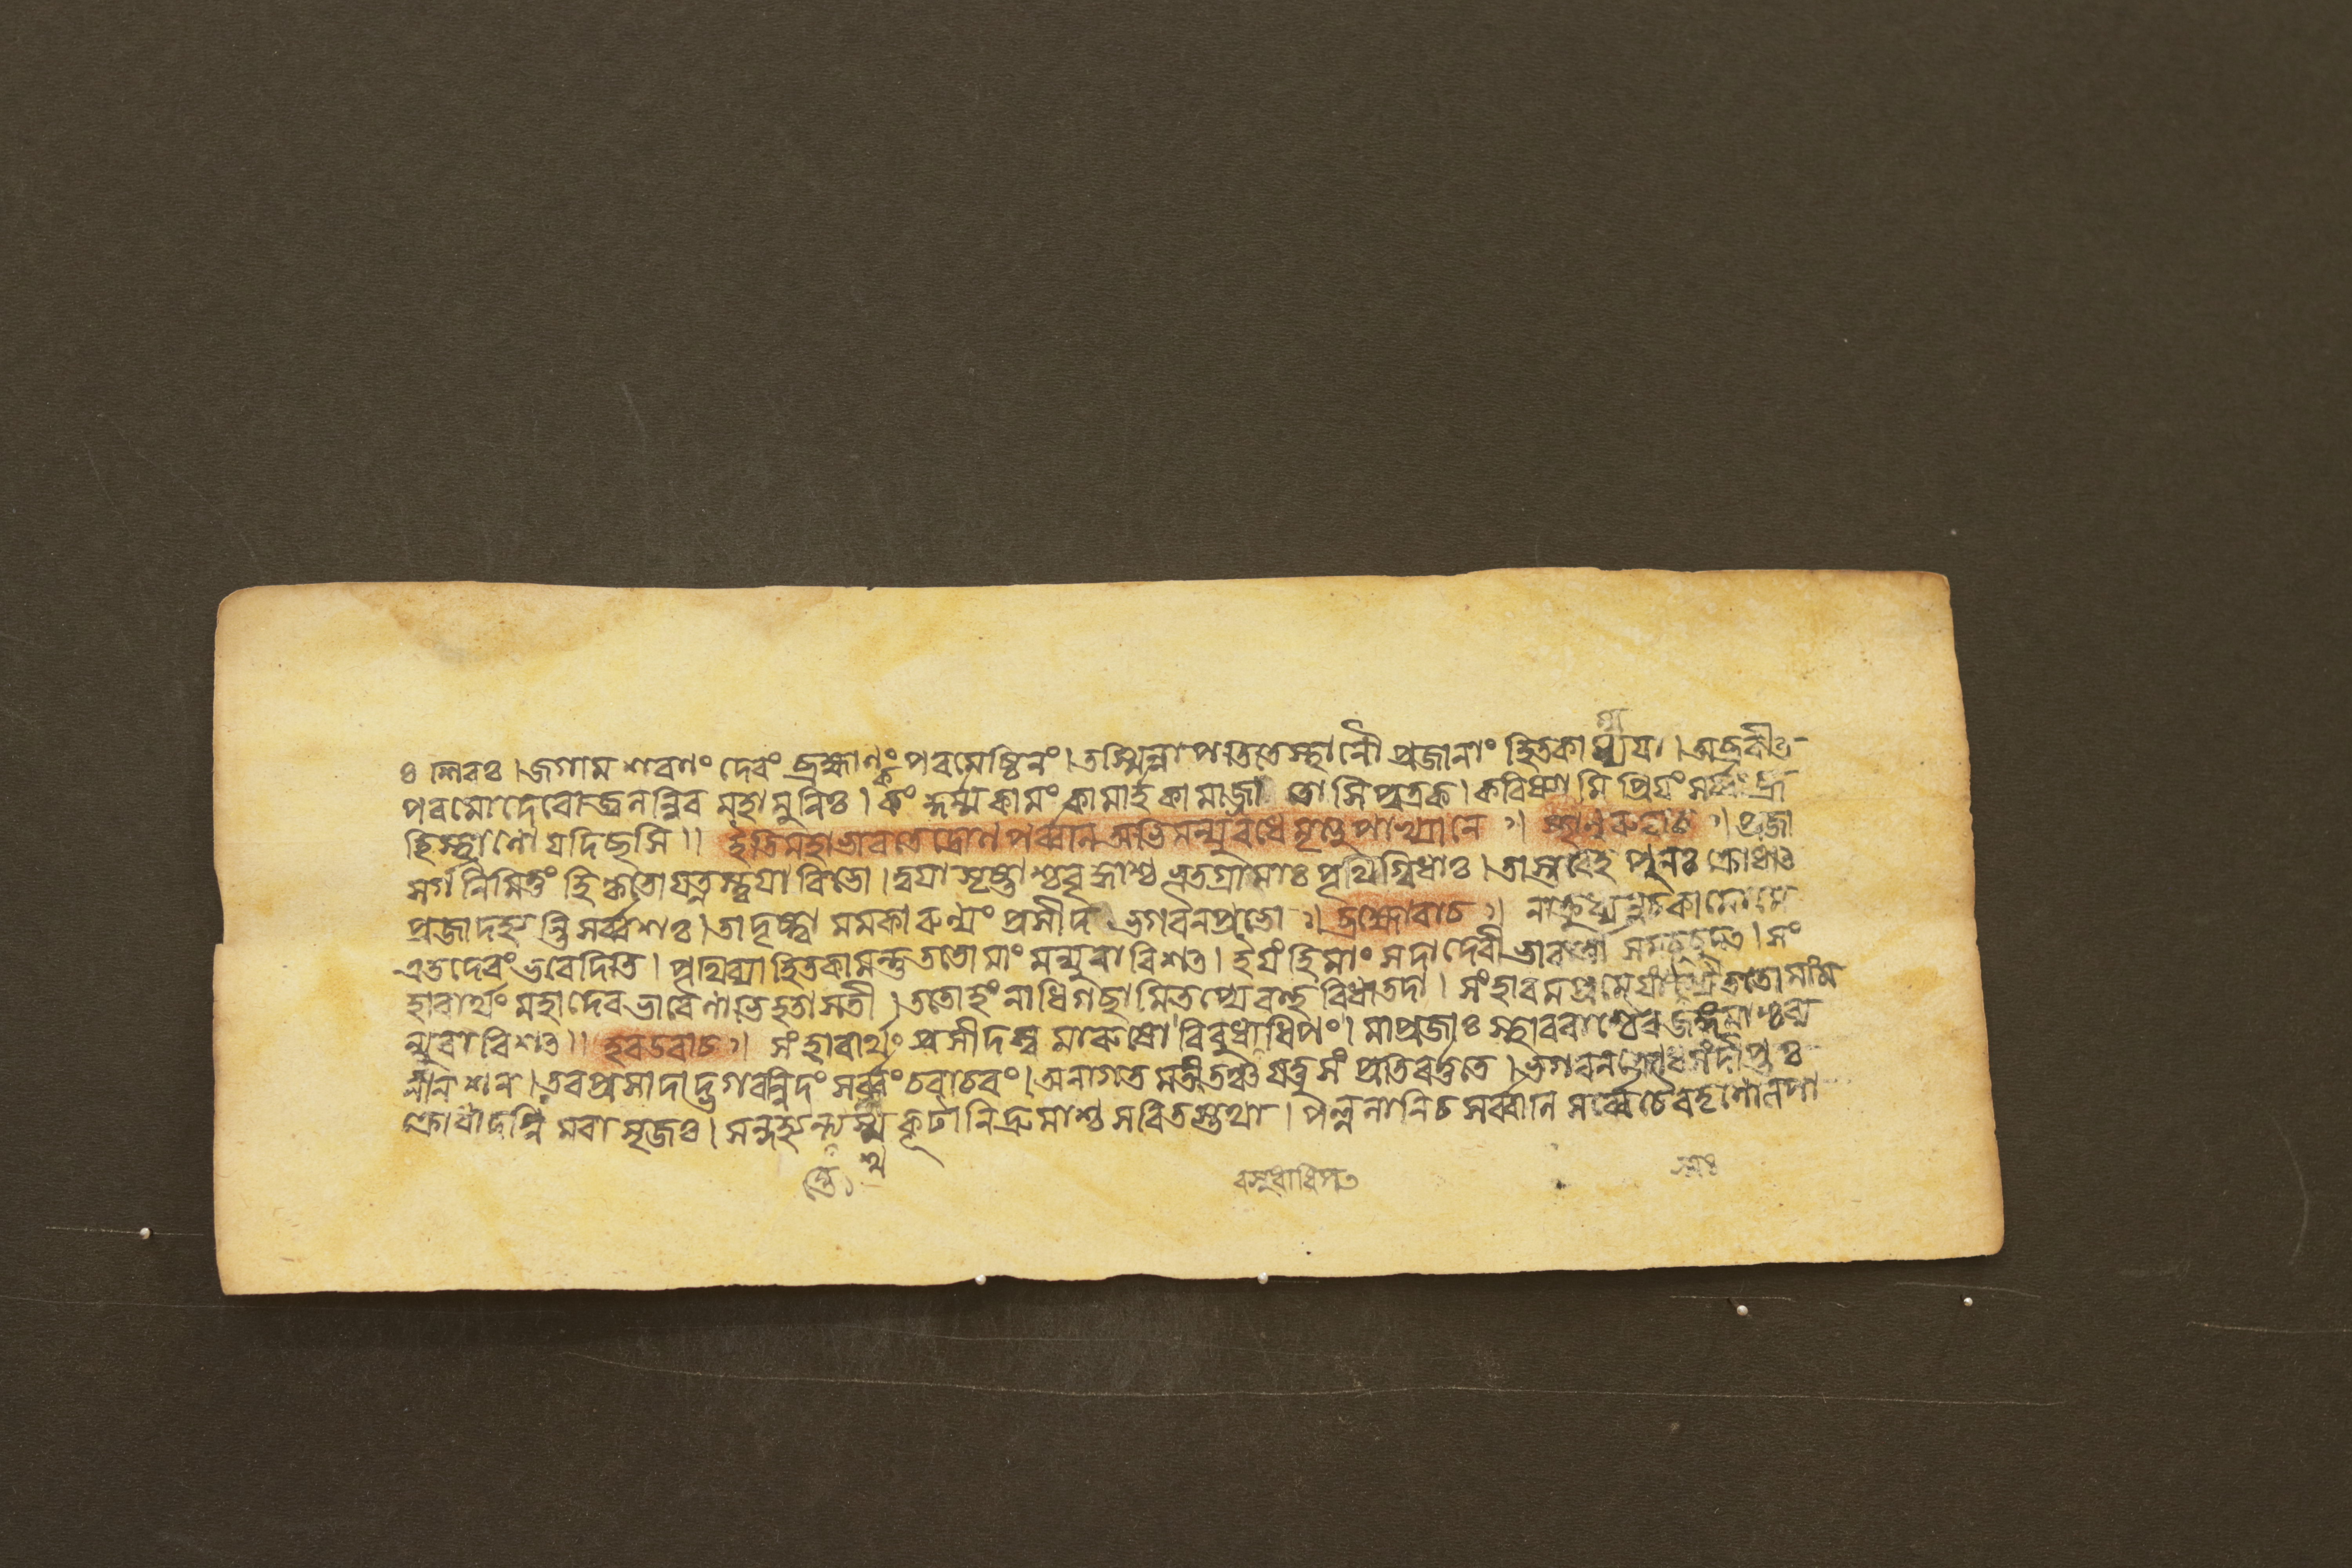 ঃ হরঃ। জগাম শরণং দেবং ব্রহ্মাণং পরমেষ্ঠিনং। তস্মিন্নাপতিতেস্থানৌ প্রজানাং হিতকাম্যযা। অব্রবীত
পরমো দেবো জ্বলন্নিব মহামুনিঃ। কিং কর্ম্মকামং কামার্হ কামাজ্জাতোসি পুত্রক। করিষ্যামি প্রিযং সর্ব্বং ব্রূ
হিস্থাণো যদিছসি॥ ইতি মহাভারতে দ্রোণপর্ব্বনি অভিমন্যুবধে মৃত্যুপাখ্যানে ॥ স্থানুরুবাচ ॥ প্রজা
সর্গনিমিত্তং হি কৃতো যত্নস্ত্বযা বিভো। ত্বযা সৃষ্টাশ্চ বৃদ্ধাশ্চ ভূতগ্রামাঃ পৃথগ্বিধাঃ। তাস্তবেহ পুনঃ ক্রোধাত
প্রজা দহ্যন্তি সর্ব্বশঃ। তা দৃষ্ট্বা মম কারুণ্যং প্রসীদ ভগবনপ্রভো ॥ ব্রহ্মোবাচ ॥ ন ক্রুধ্যে ন চ কামো মে
এতদেবং ভবেদিতি। পৃথিব্যা হিতকামন্তু ততো মাং মন্যুরাবিশত। ইযং হি মাং সদা দেবী ভারার্ত্তা সমচূচুদত। সং
হারার্থং মহাদেব ভারেণাভিহতা সতী। ততোহং নাধিগছামি তপ্যে বহু বিধং তদা। সংহারমপ্রমেযস্য ততো মাং ম
ন্যুরাবিশত॥ হরউবাচ॥ সংহারার্থং প্রসীদস্ব মা রুষো বিবুধাধিপং। মা প্রজাঃ স্থাবরাশ্চৈব জঙ্গমাশ্চ ব্য
নীনশন। তব প্রসাদাদ্ভগবন্নিদং সর্ব্বং চরাচরং। অনাগতমতীতঞ্চ যচ্চ সংপ্রতিবর্ত্ততে। ভগবন ক্রোধসংদীপ্তঃ
ক্রোধাদগ্নিমবাসৃজঃ। সন্দহ্যন্ত্যশ্মকূটানি দ্রুমাশ্চ সরিতস্তথা। পল্বলানি চ সর্ব্বানি সর্ব্বে চৈব তৃণোলপা
বসুধাধিপত